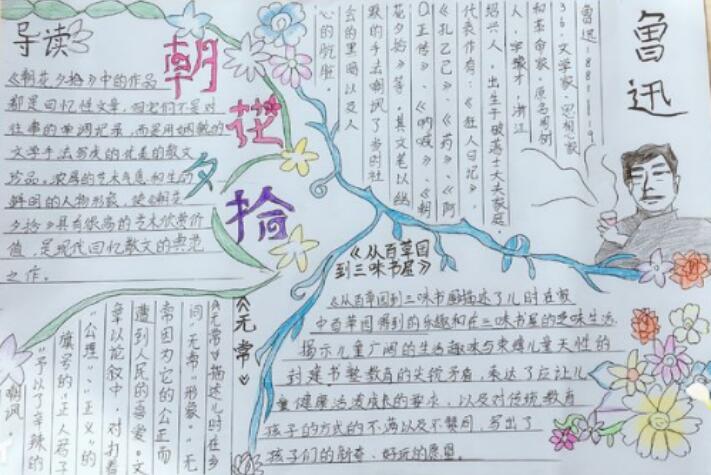 导读
《朝花夕拾》中的作品
都是回忆性文章，但它们不是对
往事的单调记录，而是用娴熟的
文学手法写成的优美的散文
珍品，浓厚的艺术气息和生动
鲜明的人物形象，使《朝花
夕拾》具有很高的艺术欣赏价
值，是现代回忆散文的典范
之作。
朝花夕拾
鲁迅
鲁迅1881—19
36，文学家、思想家
和革命家，原名周树
人，字豫才，浙江
绍兴人，出生于破落士大夫家庭，
代表作有：《狂人日记》、
《孔乙己》《药》、《阿
Q正传》、《呐喊》、《朝
花夕拾》等，其文笔以幽
默的手法嘲讽了当时社
会的黑暗以及人
心的肮脏。
《从百草园
到三味书屋》
《从百草园到三味书屋》描述了儿时在家
中百草园得到的乐趣和在三味书屋的乏味生活，
揭示儿童广阔的生活趣味与束缚儿童天性的
封建书塾教育的尖锐矛盾，表达了应让儿
童健康活泼成长的要求，以及对传统教育
孩子的方式的不满以及不赞同，写出了
孩子们的新奇、好玩的愿望。
《无常》
《无常》描述儿时在乡
间"无常"形象。"无
常因为它的公正而
遭到人民的喜爱。文
章以论叙中，对打着
"公理"、"正义"的
旗号的"正人君子
"予以了辛辣的
嘲讽